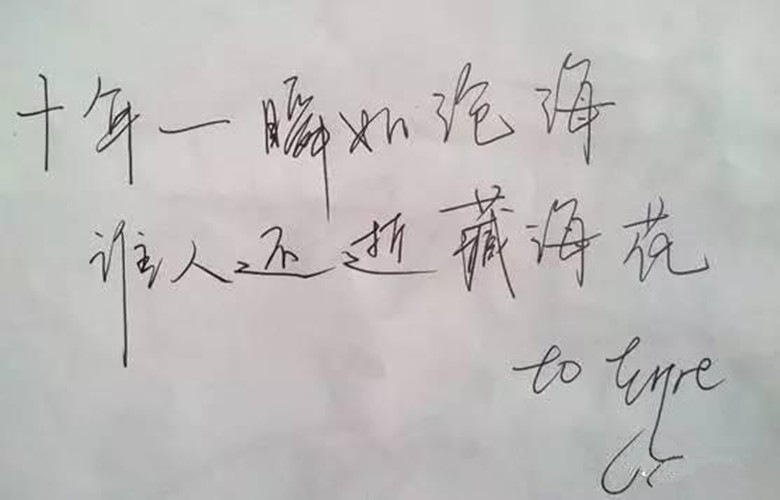 十年一瞬如沧海
谁人还逝藏海花
to